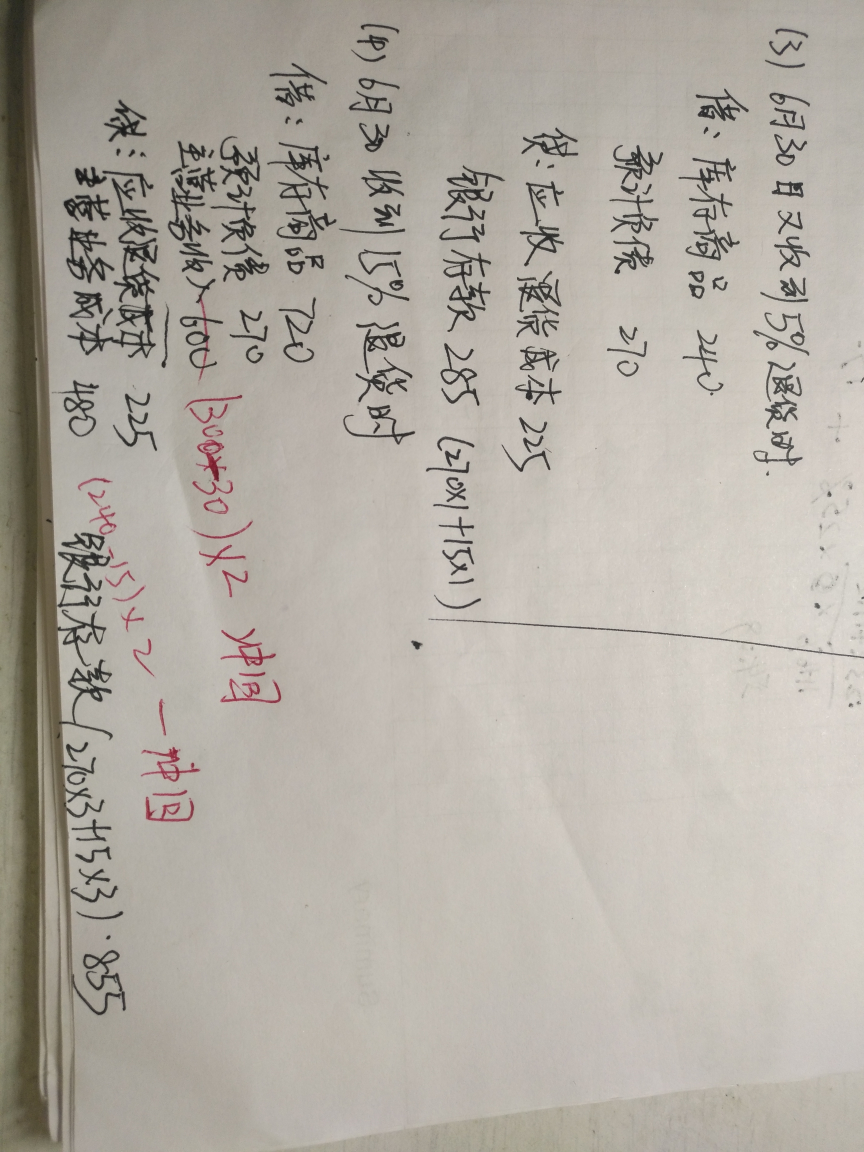 (3) 6月30日又收到5%退货时.
借：库存商品 240
预计负债 270
贷：应收退货成本 225
银行存款 285 (270×1+15×1)
(4) 6月30 收到15%退货时
借：库存商品 720
预计负债 270
主营业务收入 600 (300×30)×2 冲回
贷：应收退货成本 225
主营业务成本 480 (240-15)×2 — 冲回
银行存款 (270×3+15×3) . 855